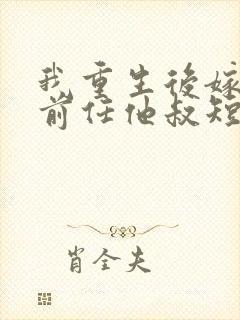 我重生後嫁
前任他叔短
肖全夫